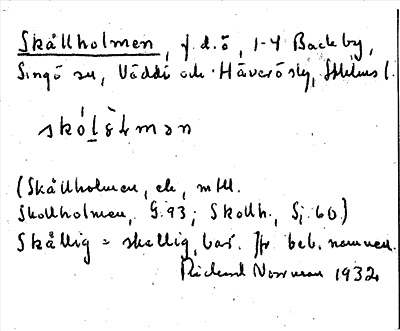 Skållholmen, f. d. ö, 1-4 Backby,
Singö sn, Väddö och Häverö skg, Sthlms l.
skó̀lhɷlmən
(Skållholmen, ek, mtbl.
Skollholmen, G. 93; Skollh., Sj. 60)
Skållig = skallig, bar. Jfr beb. namnen.
Rickard Norrman 1932